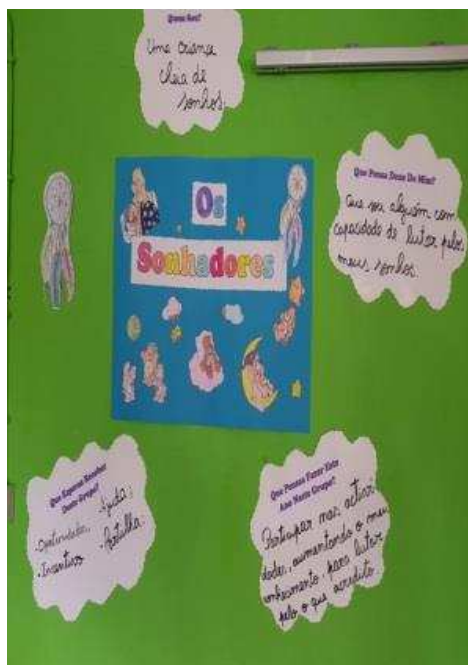 Quem Sou?
Uma criança
cheia de
sonhos.
Os
Sonhadores
Que Pensa Deus De Mim?
Que sou alguém com
capacidade de lutar pelos
meus sonhos.
Que Espero Receber
Deste Grupo?
-Oportunidades, Ajuda;
-Incentivo -Partilha.
Que Penso Fazer Este
Ano Neste Grupo?
Participar nas activi
dades, aumentando o meu
conhecimento para lutar
pelo o que acredito